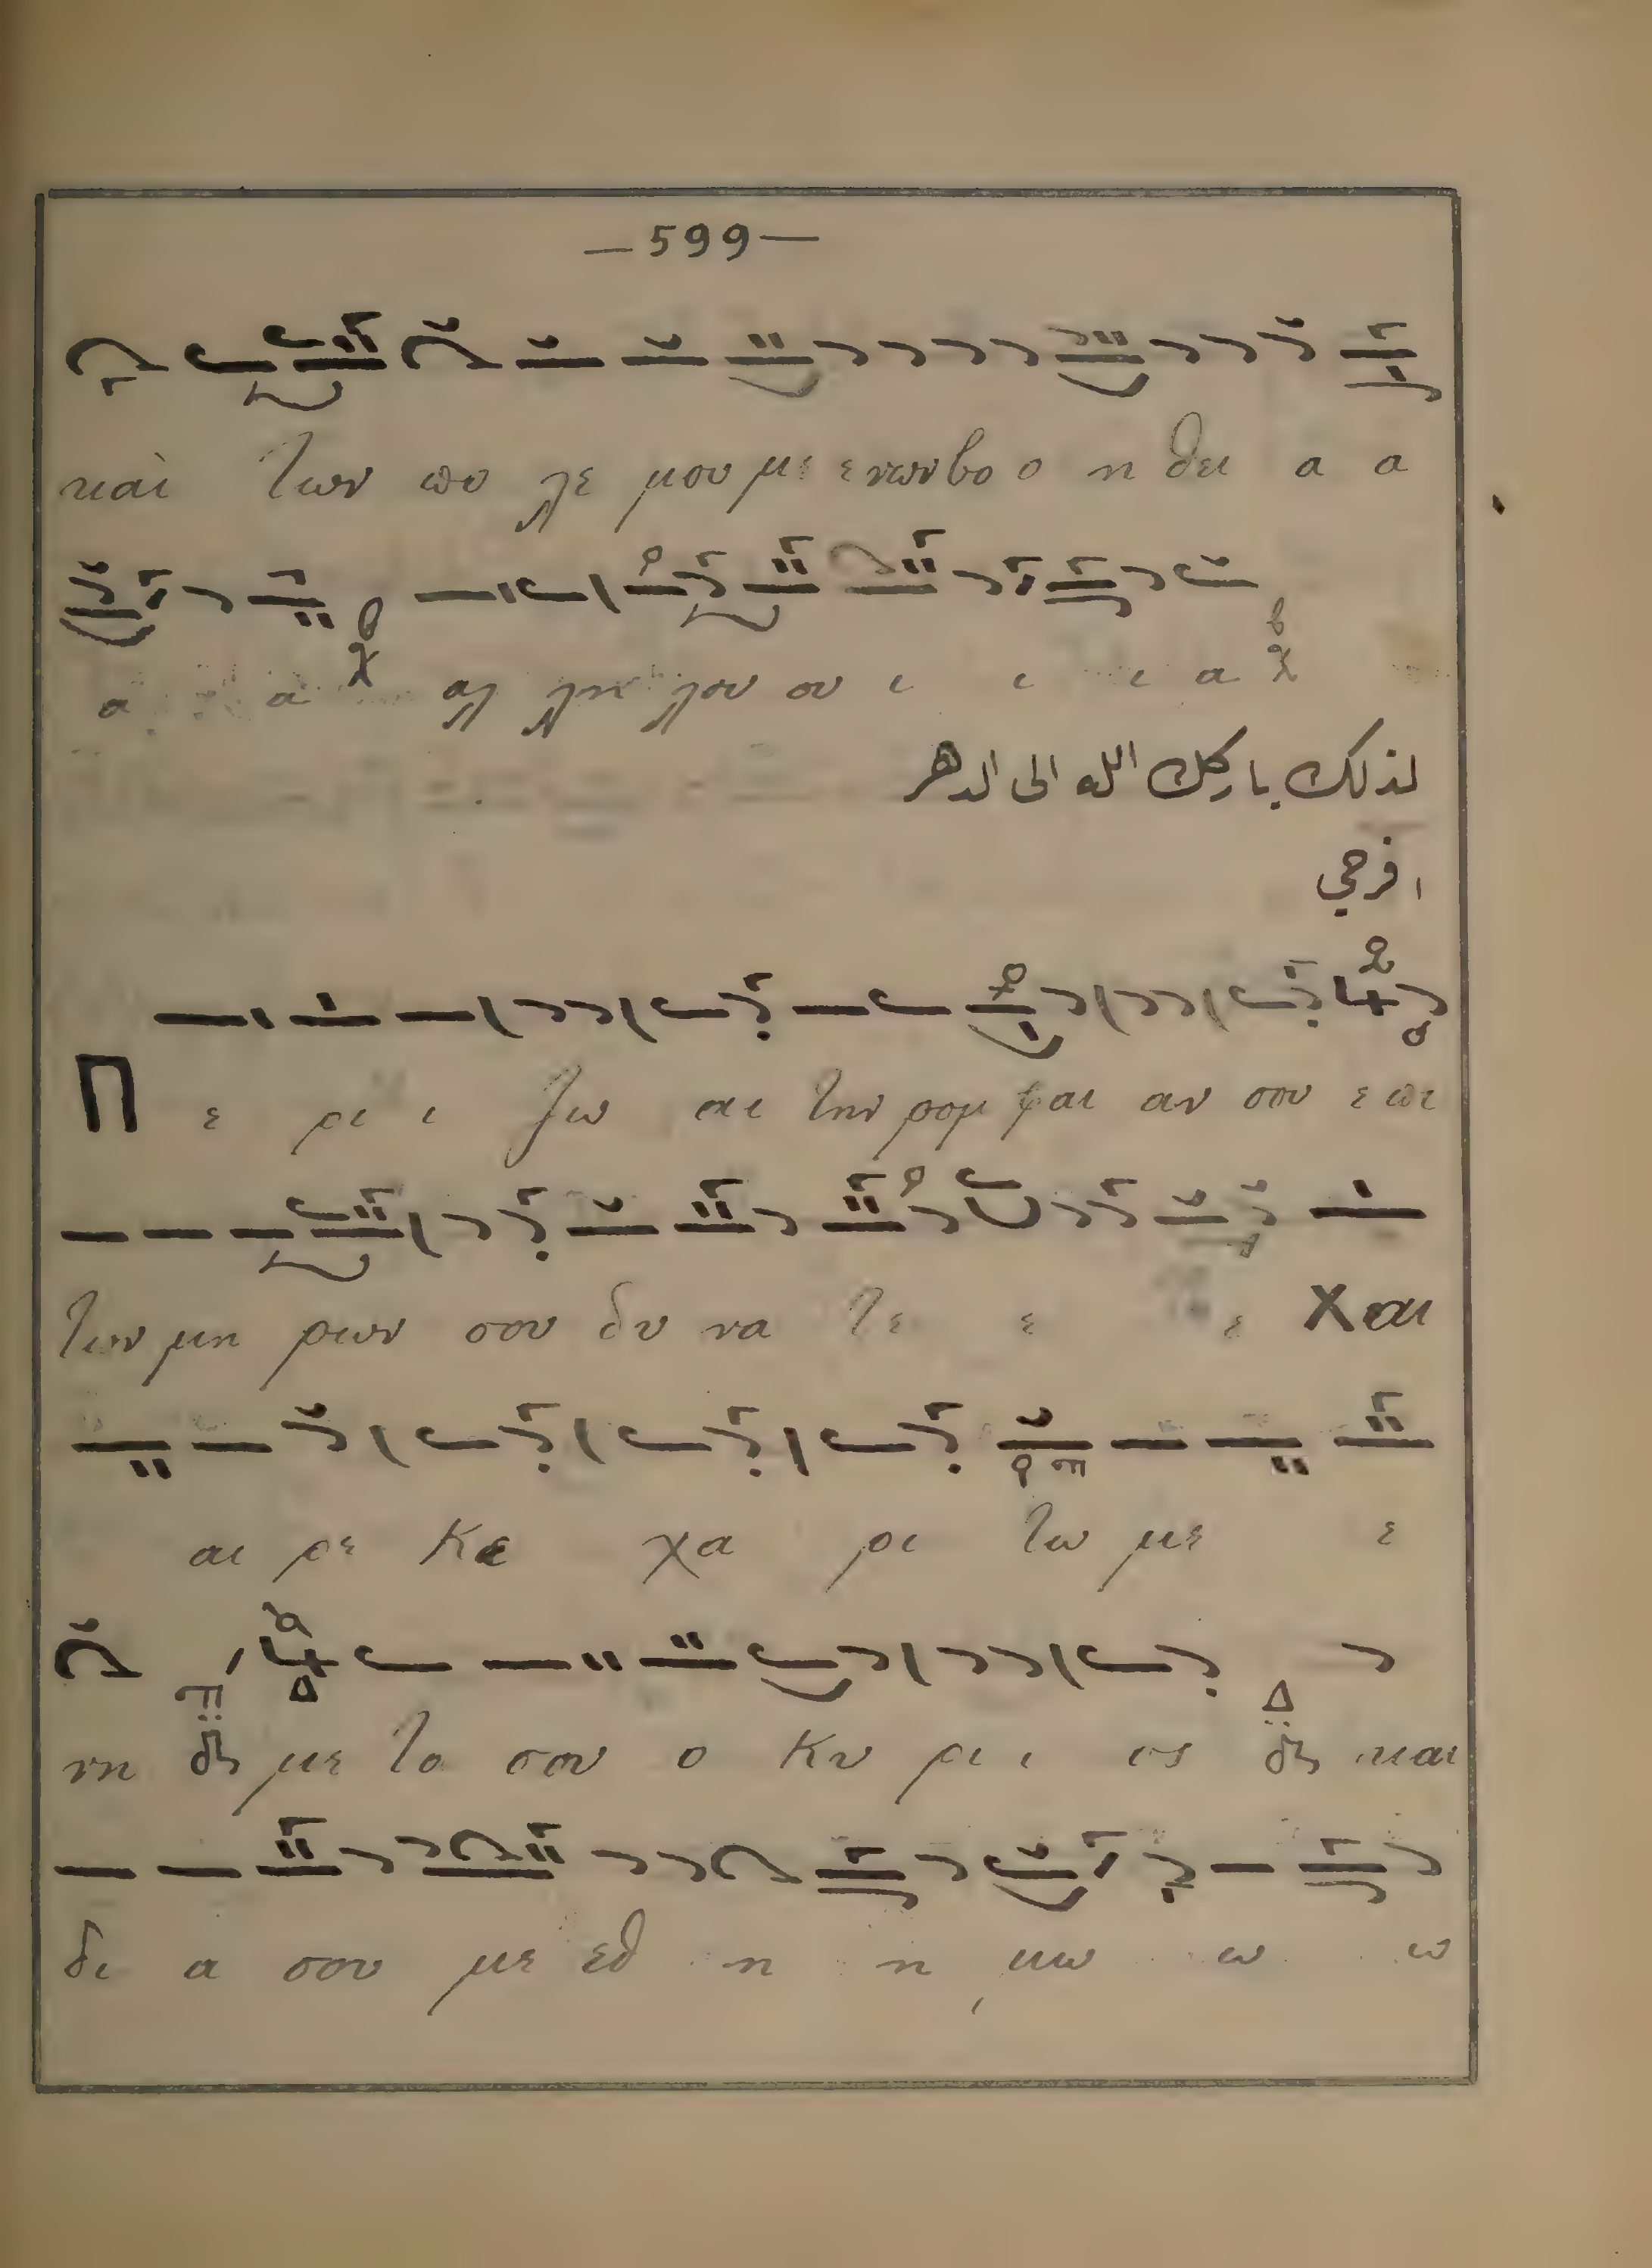 —599—
και των πο λε μου με ε νων βο ο η θει α α
α α αλ λη λου ου ι ι ι α
لذلك باركك الله الى الدهر
افرحي
Π ε ρι ι ζω αι την ρομ φαι αν σου ε πι
των μη ρων σου δυ να τε ε ε Χαι
αι ρε Κε χα ρι τω με ε
νη με το σου ο Κυ ρι ι ος και
δι α σου με εθ η η μω ω ω